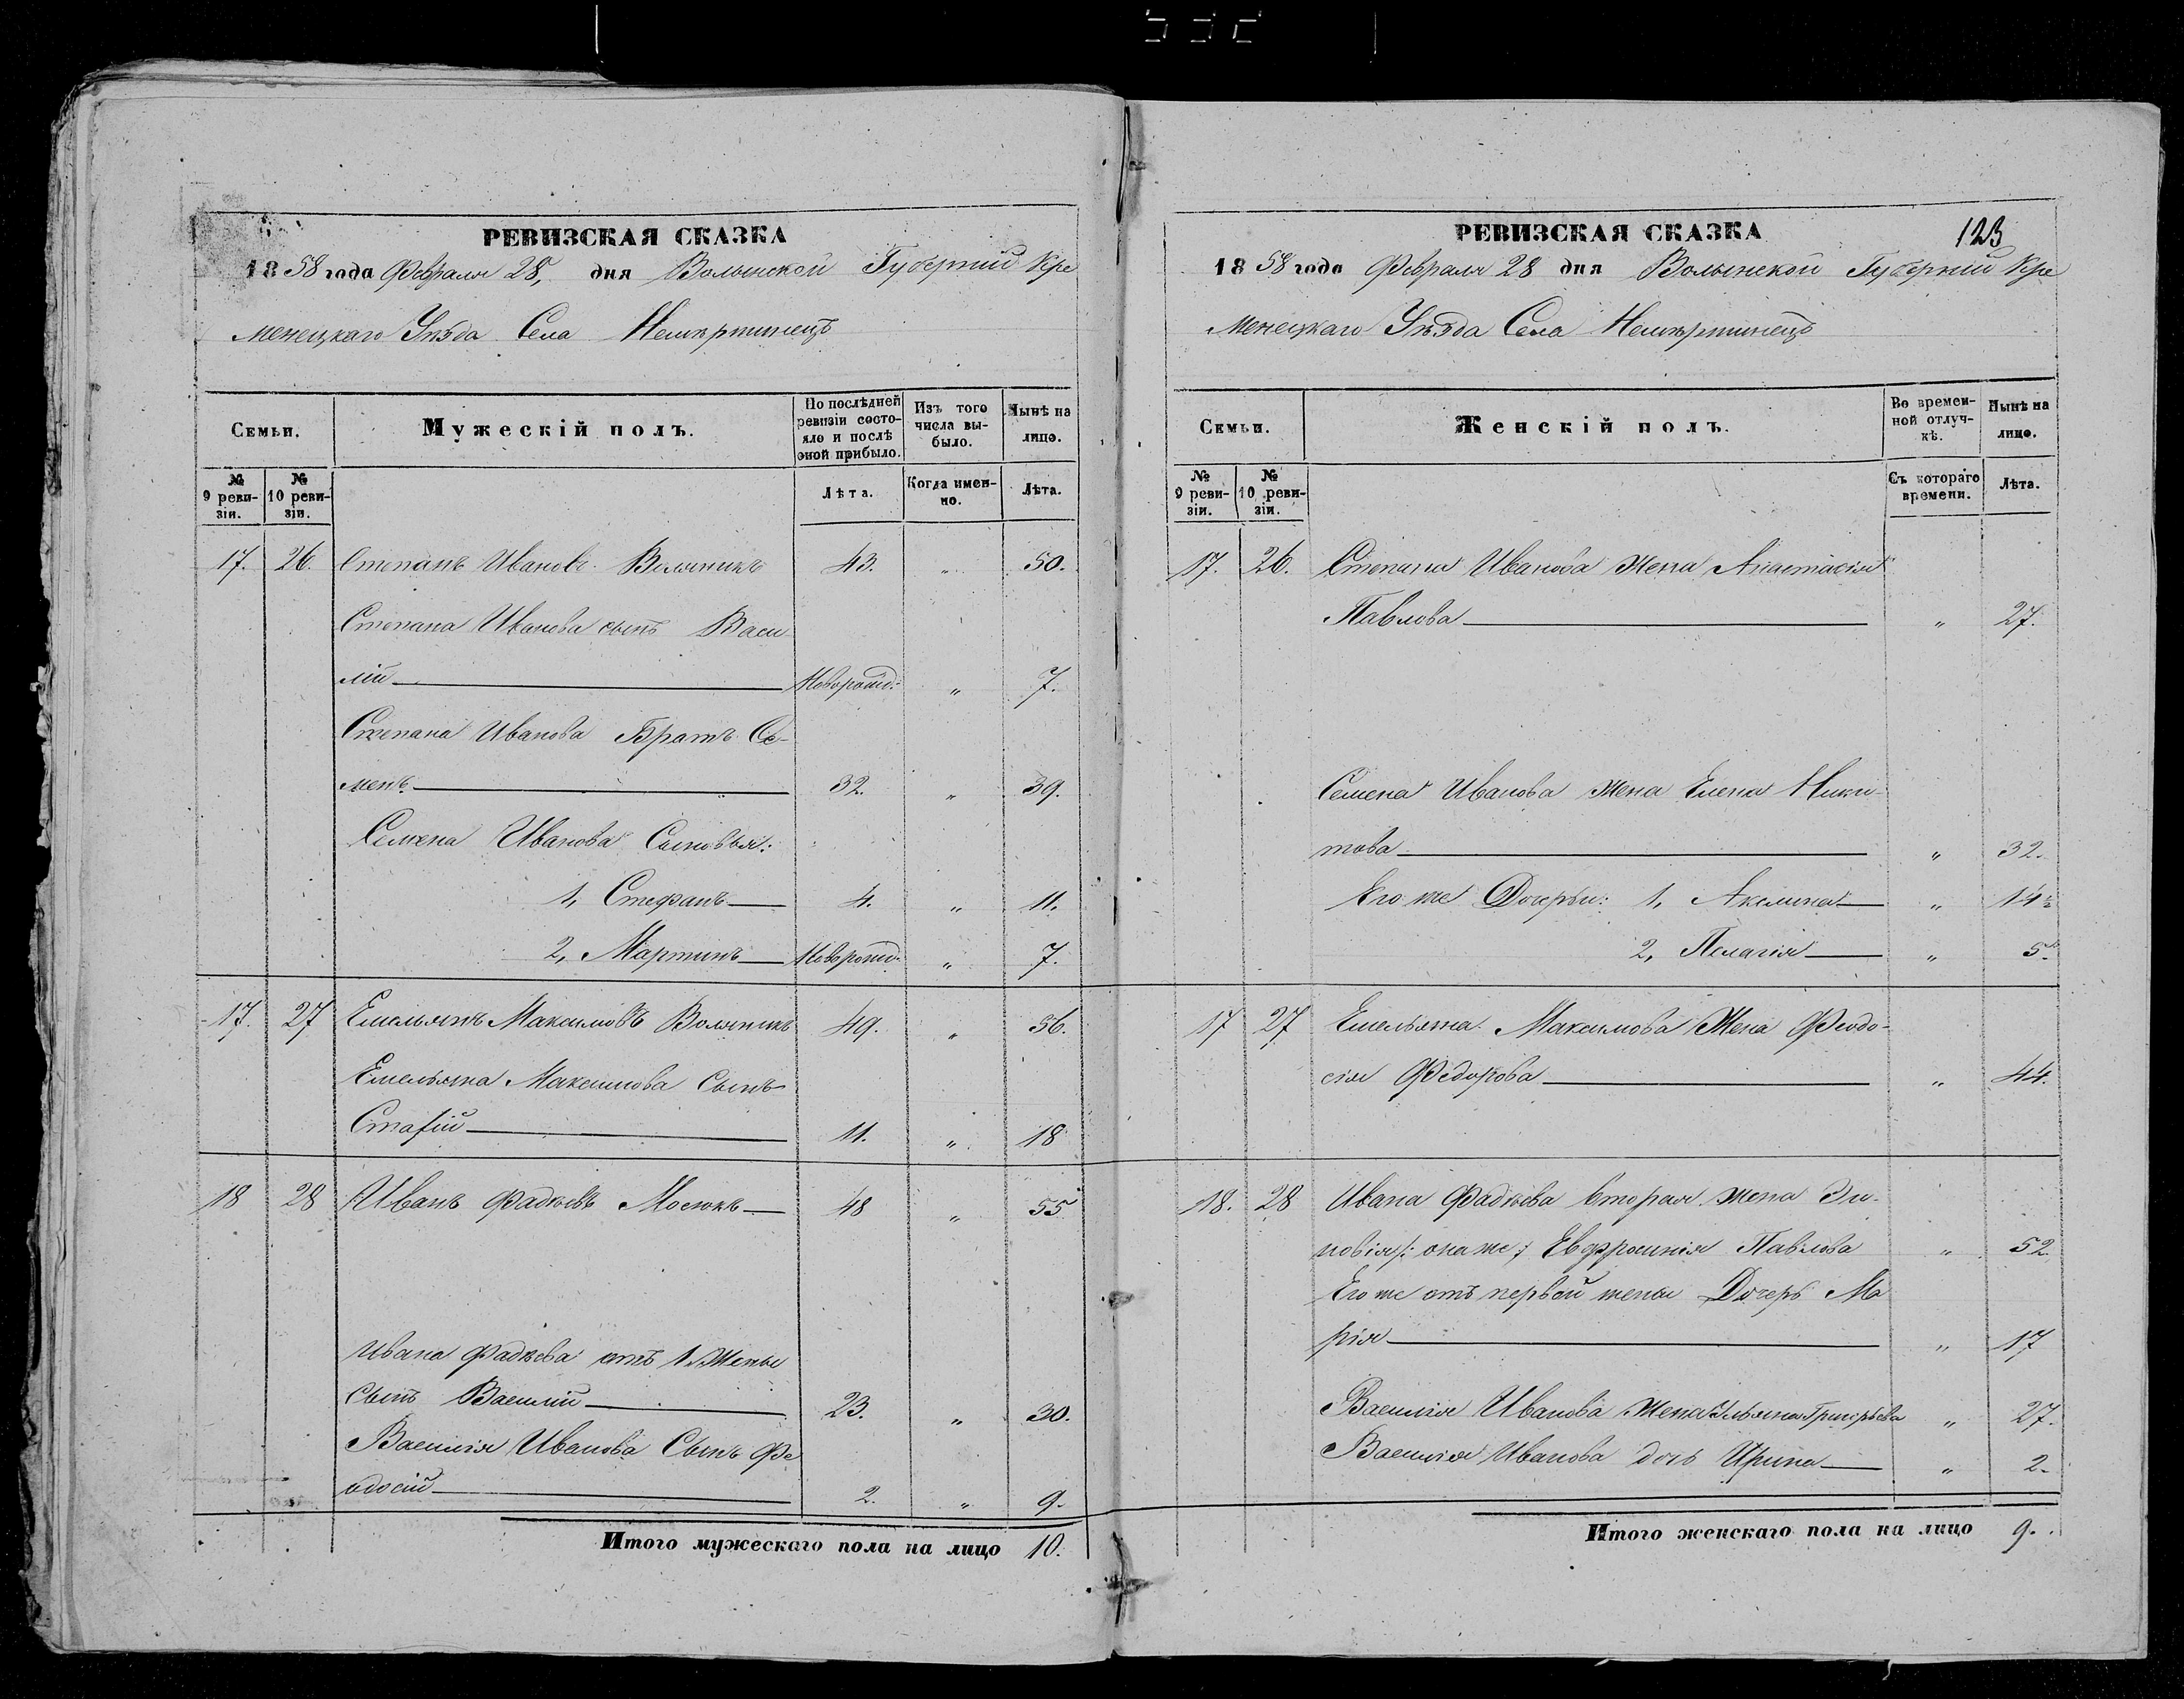 РЕВИЗСКАЯ СКАЗКА
1858 года Февраля 28, дня Волынской Губерніи Кре
менецкаго Уѣзда Села
Семьи.
Мужескій полъ.
По послѣдней
ревизіи состо-
яло и послѣ
оной прибыло.
Изъ того
числа вы-
было.
Нынѣ на
лицо.
№
9 реви-
зіи.
№
10 реви-
зіи.
Лѣта.
Когда имен-
но.
Лѣта.
17. 26. Степанъ Ивановъ 43. " 50.
Степана Иванова сынъ Васи
лій Новорожд: " 7.
Степана Иванова Братъ Се-
менъ 32. " 39.
Семена Иванова Сыновья:
1, Стефанъ 4. " 11.
2, Мартинъ Новорожд. " 7.
17. 27 Емельянъ Максимовъ 49. " 56.
Емельяна Максимова Сынъ
11. " 18
18 28 Иванъ Фадѣевъ Мосюкъ 48 " 55
Ивана Фадѣева отъ 1. Жены
Сынъ Василій 23. " 30.
Василія Иванова Сынъ Фе
одосій 2. " 9.
Итого мужескаго пола на лицо 10.
РЕВИЗСКАЯ СКАЗКА
123
1858 года Февраля 28 дня Волынской Губерніи Кре
менецкаго Уѣзда Села
Семьи.
Женскій полъ.
Во времен-
ной отлуч-
кѣ.
Нынѣ на
лицо.
№
9 реви-
зіи.
№
10 реви-
зіи.
Съ котораго
времени.
Лѣта.
17. 26. Степана Иванова жена Анастасія
Павлова " 27.
Семена Иванова жена Елена Ники-
това " 32.
Его же Дочерьи: 1, Акелина " 14½
2, Пелагія " 5.
17 27 Емельяна Максимова Жена Феодо-
сія Федорова " 44.
18. 28 Ивана Фадѣева вторая жена Зи-
новія /: она же :/ Евфросинія Павлова " 52.
Его же отъ первой жены Дочерь Ма
рія " 17
Василія Иванова жена Ульяна Григорьева " 27.
Василія Иванова дочь Ирина " 2.
Итого женскаго пола на лицо 9.